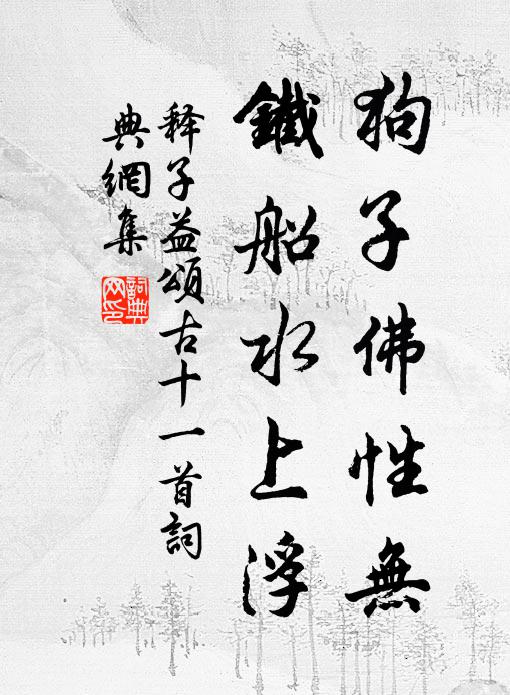 狗子佛性無
鐵船水上浮
释子益頌古十一首詞
典網集
詞典
网印